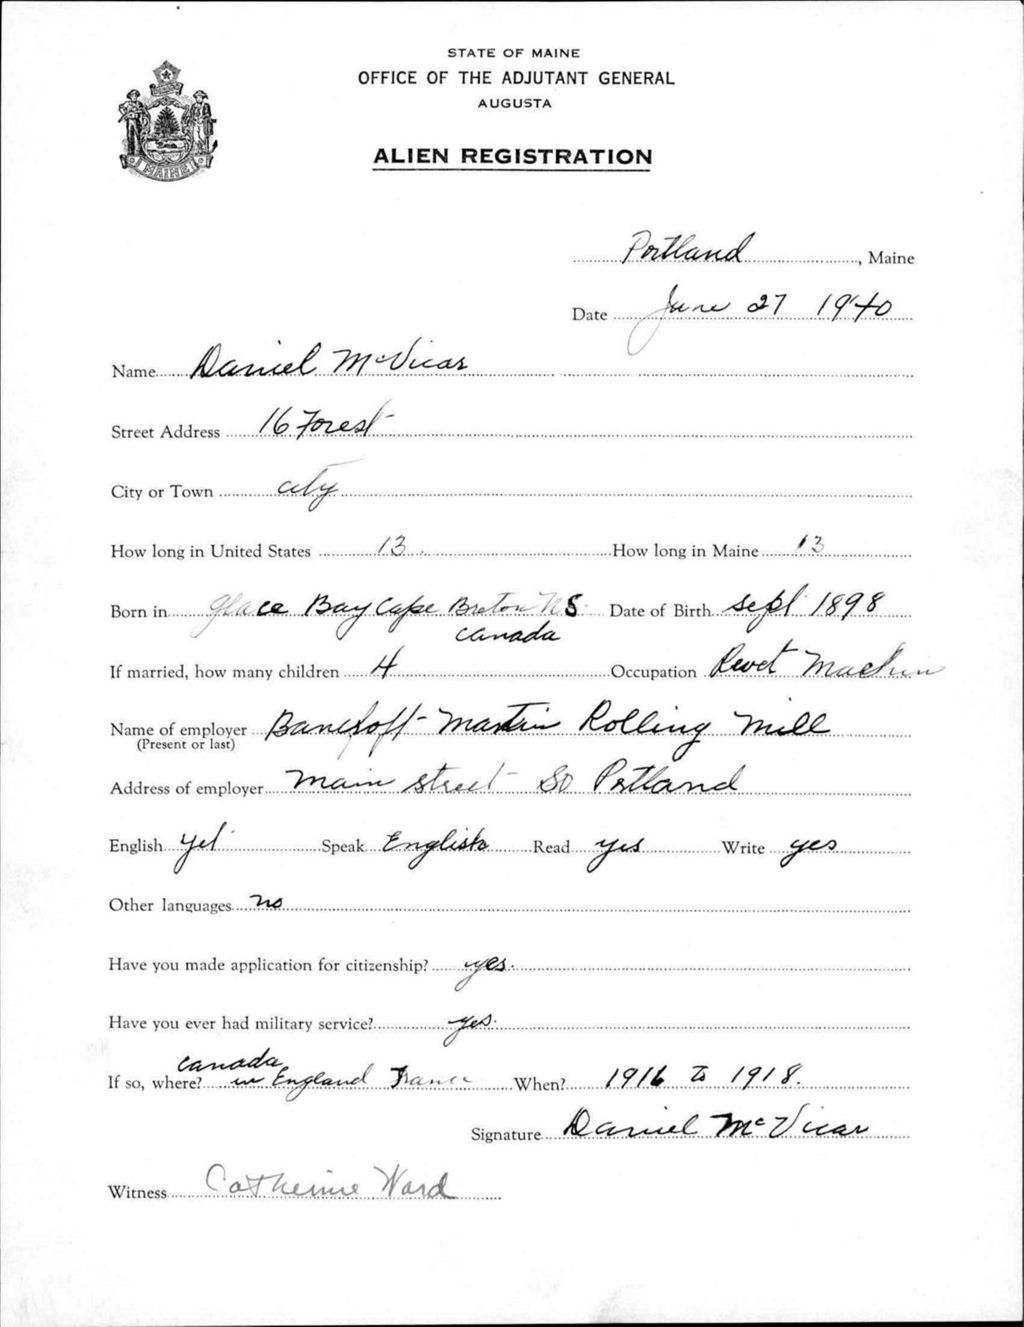 STATE OF MAINE
OFFICE OF THE ADJUTANT GENERAL
AUGUSTA
ALIEN REGISTRATION
MAINE
Portland, Maine
Date June 27 1940
Name Daniel McVicar
Street Address 16 Forest
City or Town city
How long in United States 13 How long in Maine 13
Born in Glace Bay Cape Breton N S Date of Birth Sept 1898
Canada
If married, how many children 4 Occupation Revet Machin
Name of employer Bancroft-Martin Rolling Mill
(Present or last)
Address of employer Main Street So Portland
English yes Speak English Read yes Write yes
Other languages no
Have you made application for citizenship? yes.
Have you ever had military service? yes.
Canada
If so, where? in England France When? 1916 to 1918.
Signature Daniel McVicar
Witness Catherine Ward